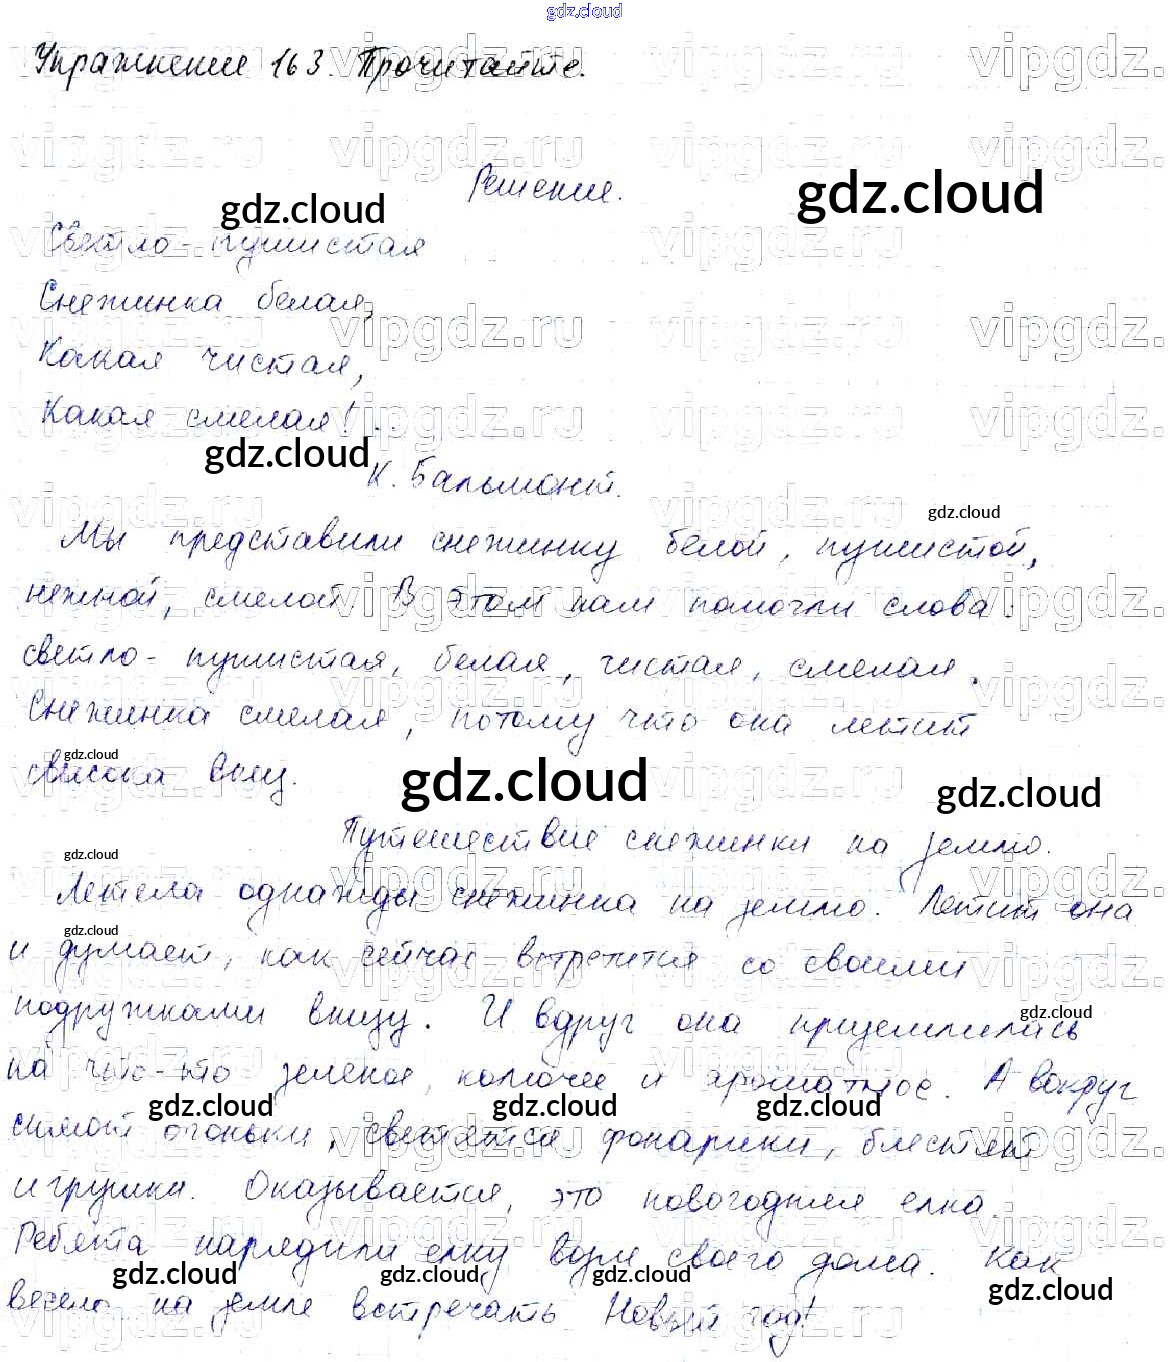 gdz.cloud
Упражнение 163. Прочитайте.
Решение.
gdz.cloud
gdz.cloud
Светло-пушистая
Снежинка белая,
Какая чистая,
Какая смелая!
gdz.cloud
К. Бальмонт.
gdz.cloud
Мы представили снежинку белой, пушистой,
нежной, смелой. В этом нам помогли слова:
светло-пушистая, белая, чистая, смелая.
Снежинка смелая, потому что она летит
gdz.cloud
свысока вниз.
gdz.cloud
gdz.cloud
Путешествие снежинки на землю.
gdz.cloud
Летела однажды снежинка на землю. Летит она
gdz.cloud
и думает, как сейчас встретится со своими
подружками внизу. И вдруг она приземлилась
gdz.cloud
на что-то зеленое, колючее и ароматное. А вокруг
gdz.cloud gdz.cloud gdz.cloud
огоньки, светятся фонарики, блестят
игрушки. Оказывается, это новогодняя елка.
Ребята нарядили елку возле своего дома. Как
gdz.cloud gdz.cloud gdz.cloud gdz.cloud
весело на земле встречать Новый год!